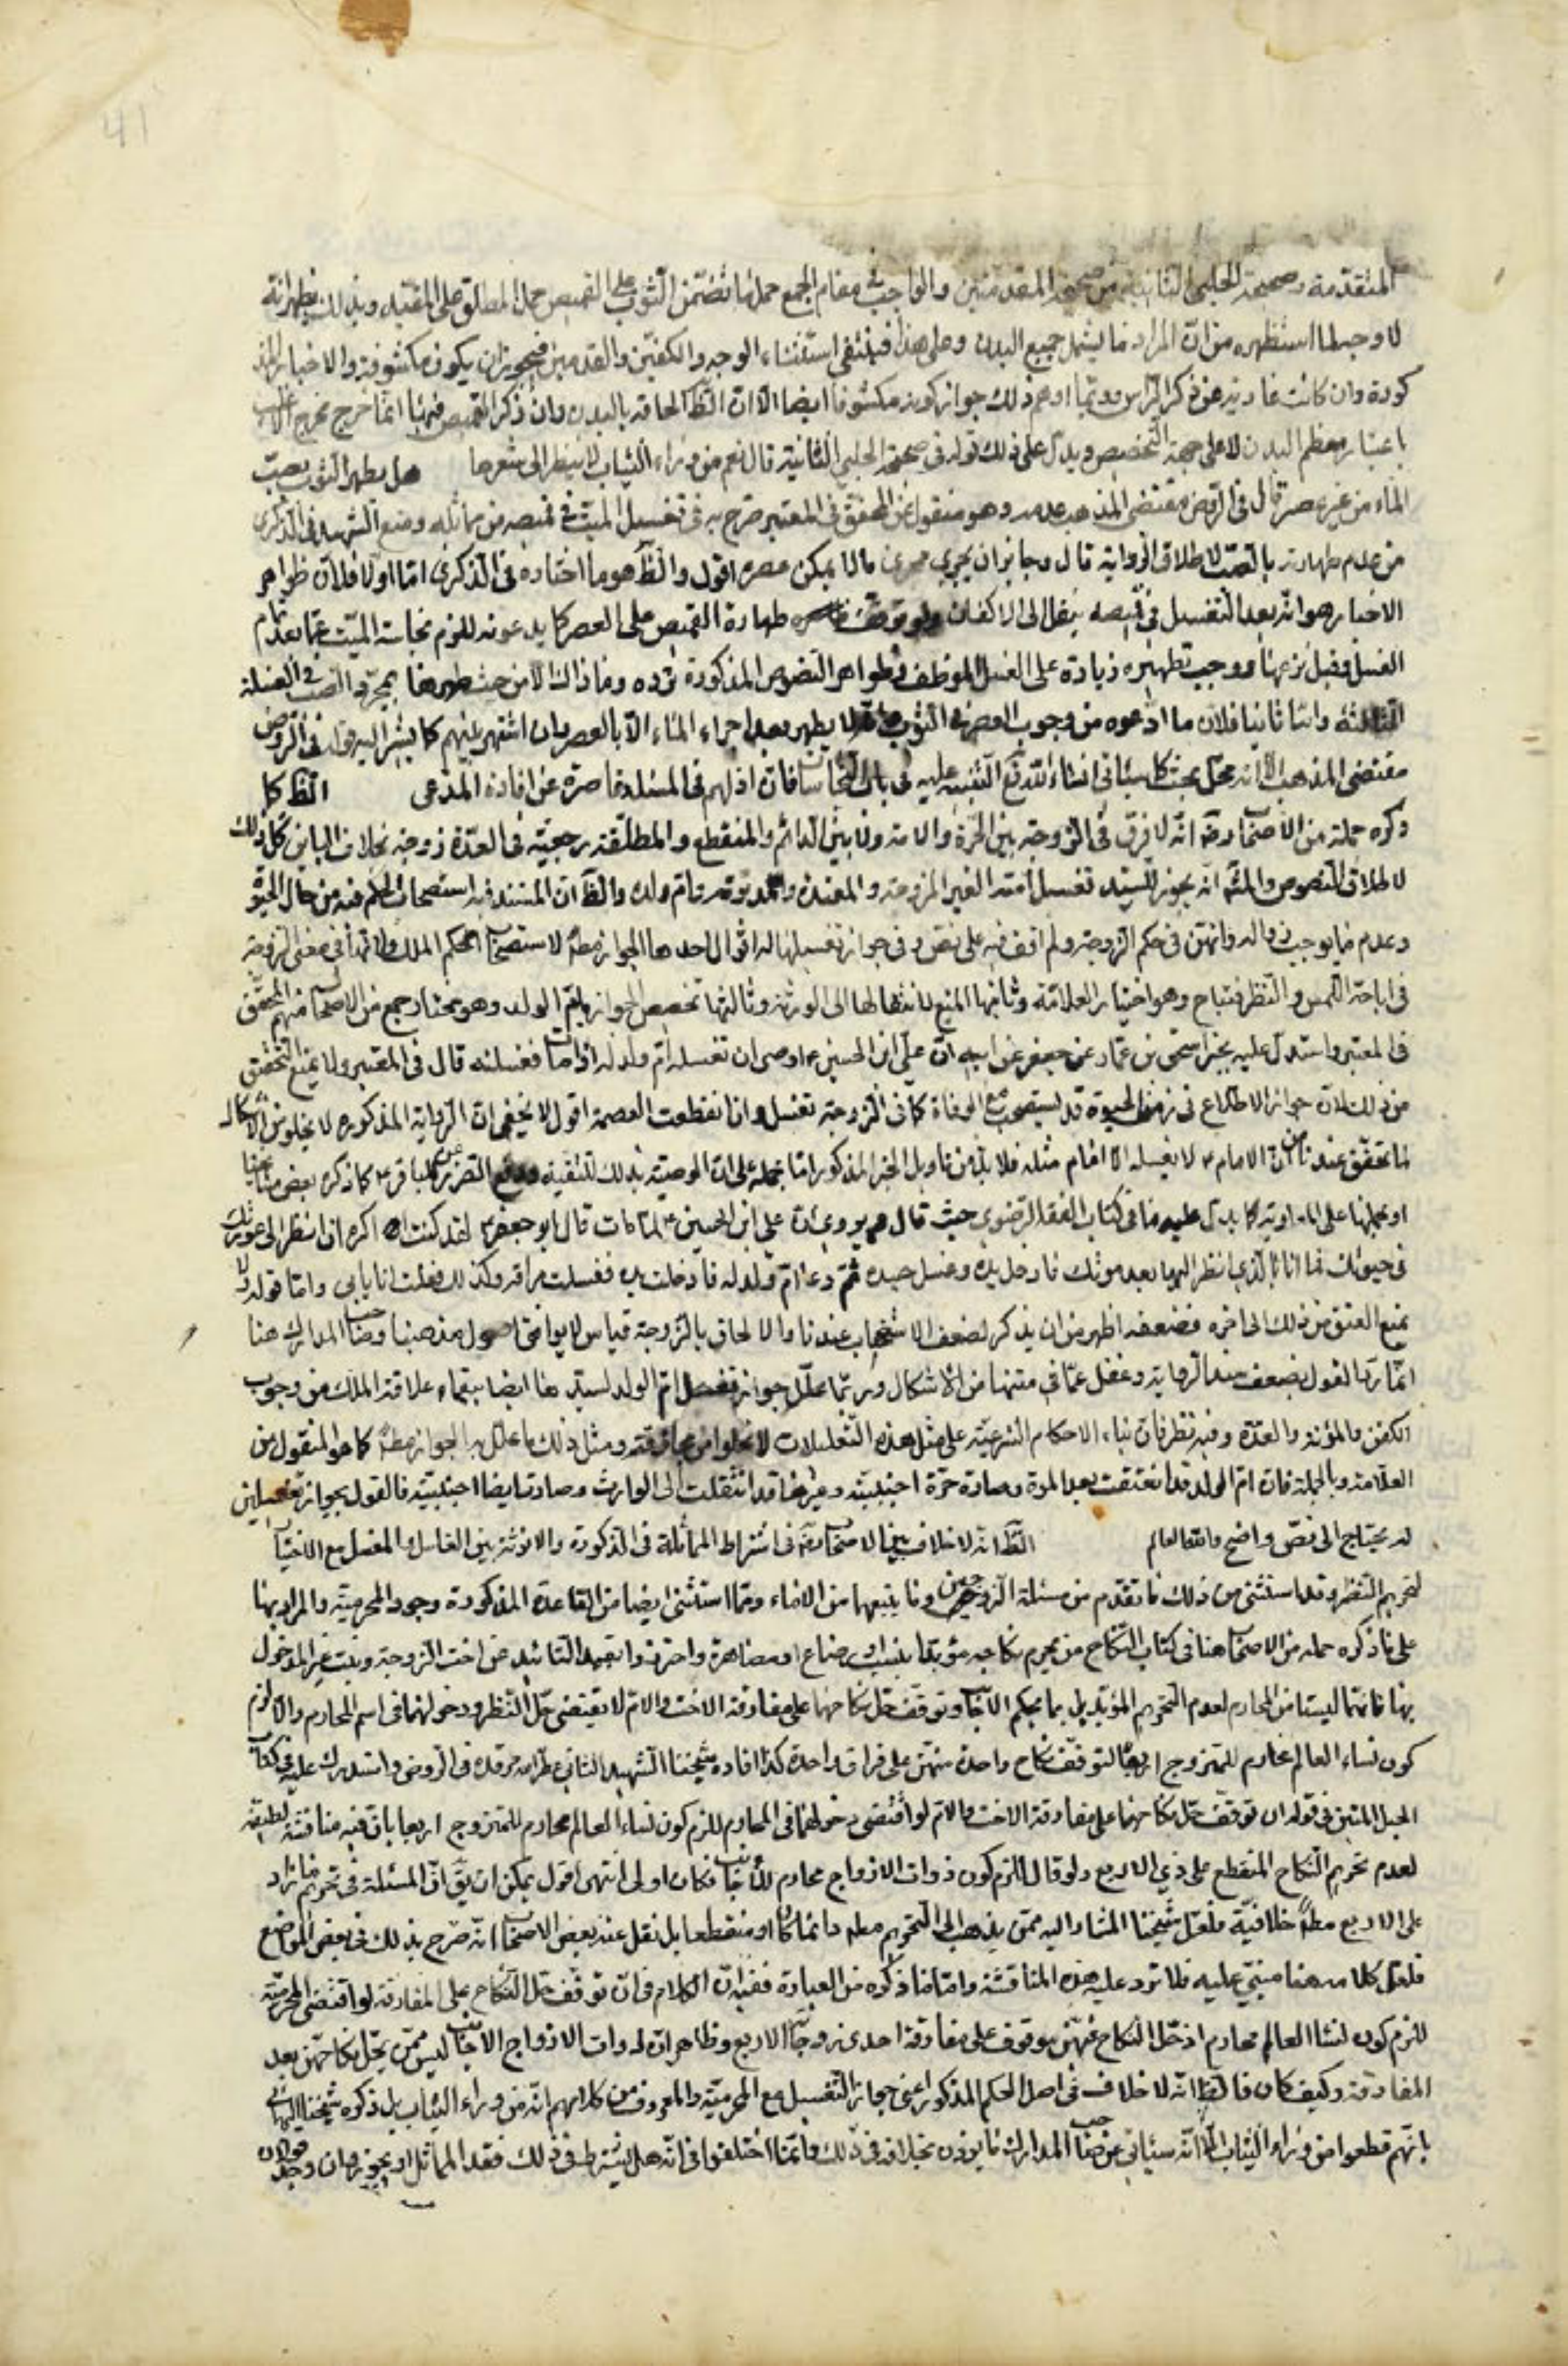 المتقدمة وصحيحة الحلبي الثانية من صحيحة المتقدمتين والواجب في مقام الجمع حمل ما تضمن الثوب على القميص حمل المطلق على المقيد وبذلك يظهر انه
لا وجه لما استظهره من ان المراد ما يشمل جميع البدن وعلى هذا فينتفي استثناء الوجه والكفين والقدمين فيجوز ان يكون مكشوفة والاخبار المذ
كورة وان كانت عارية عن ذكر الراس وربما اوهم ذلك جواز كونه مكشوفا ايضا الا ان الظ الحاقه بالبدن وان ذكر القميص فيها انما خرج مخرج الاغلب
باعتبار معظم البدن لا على جهة التخصيص ويدل على ذلك قوله في صحيحة الحلبي الثانية قال نعم من وراء الثياب لا ينظر الى شعرها هل يطهر الثوب بصب
الماء من غير عصر قال في الروض مقتضى المذهب عدمه وهو منقول عن المحقق في المعتبر صرح به في تغسيل الميت في قميصه من مماثله ومنع الشهيد في الذكرى
من عدم طهارته بالصب لاطلاق الرواية قال وجاز ان يجري مجرى ما لا يمكن عصره اقول والظ هو ما اختاره في الذكرى اما اولا فلان ظواهر
الاخبار هو انه بعد التغسيل في قميصه ينقل الى الاكفان ولو توقف طهارة القميص على العصر كما يدعونه للزم نجاسة الميت بما بعد تمام
الغسل وقبل نزعها ووجب تطهيره زيادة على الغسل الموظف وظواهر النصوص المذكورة ترده وما ذاك الا من حيث طهرها بمجرد الصب في الغسلة
الثالثة واما ثانيا فلان ما ادعوه من وجوب العصر في الثوب لا يطهر بعد اجراء الماء الا بالعصر وان اشتهر بينهم كما يشير اليه قوله في الروض
مقتضى المذهب الا انه محل بحث كما سياتي انشاء الله تع التنبيه عليه في باب النجاسات فان ادلهم في المسئلة قاصرة عن افادة المدعى الظ كما
ذكره جملة من الاصحاب رضه انه لا فرق في الزوجة بين الحرة والامة ولا بين الدائم والمنقطع والمطلقة رجعية في العدة زوجة بخلاف الباين كل ذلك
لاطلاق النصوص والمشهـ انه يجوز للسيد تغسيل امته الغير المزوجة والمعتدة والمدبرة وام ولده والظ ان المستند فيه استصحاب الحكم فيه من حال الحيوة
وعدم ما يوجب زواله وانهن في حكم الزوجة ولم اقف فيه على نص وفي جواز تغسيلها له اقوال احدها الجواز مطـ لاستصحاب حكم الملك ولانها في معنى الزوجة
في اباحة اللمس والنظر فتباح وهو اختيار العلامة وثانيها المنع لانتقالها الى الورثة وثالثها تخصيص الجواز بام الولد وهو مختار جمع من الاصحاب منهم المحقق
في المعتبر واستدل عليه بخبر اسحق بن عمار عن جعفر عن ابيه ان علي ابن الحسين ع اوصى ان تغسله ام ولد له اذا مات فغسلته قال في المعتبر ولا يمنع العتق
من ذلك لان جواز الاطلاع في زمن الحيوة قد يستصحب مع الوفاة كما في الزوجة تغسل وان انقطعت العصمة اقول لا يخفى ان الرواية المذكورة لا يخلو من الاشكال
لما تحقق عندنا من ان الامام ع لا يغسله الا امام مثله فلا بد من تاويل الخبر المذكور اما بحمله على ان الوصية بذلك للتقية ودفع الضرر عن الباقر ع كما ذكره بعض مشايخنا
او بحملها على المعاونة كما يدل عليه ما في كتاب الفقه الرضوي حيث قال ويروى ان علي ابن الحسين ع لما مات قال ابو جعفر ع لقد كنت اكره ان انظر الى عورتك
في حيوتك فما انا بالذي انظر اليها بعد موتك فادخل يده وغسل جسده ثم دعا ام ولد له فادخلت يده فغسلت مراقه وكذلك فعلت انا بابي واما قوله ولا
يمنع العتق من ذلك الى اخره فضعفه اظهر من ان يذكر لضعف الاستصحاب عندنا والالحاق بالزوجة قياس لا يوافق اصول مذهبنا وصاحب المدارك هنا
انما رد القول بضعف سند الرواية وغفل عما في متنها من الاشكال وربما علل جواز تغسيل ام الولد لسيدها ايضا ببقاء علاقة الملك من وجوب
الكفن والمؤنة والعدة وفيه نظر فان بناء الاحكام الشرعية على مثل هذه التعليلات لا يخلو من مجازفة ومثل ذلك ما علل به الجواز مطـ كما هو المنقول من
العلامة وبالجملة فان ام الولد قد انعتقت بعد الموت وصارت حرة اجنبية وغيرها قد انتقلت الى الوارث وصارت ايضا اجنبية فالقول بجواز تغسيلهن
له يحتاج الى نص واضح والله العالم الظ انه لا خلاف بين الاصحاب رضه في اشتراط المماثلة في الذكورة والانوثة بين الغاسل والمغسل مع الاختيار
لتحريم النظر وقد استثني من ذلك ما تقدم من مسئلة الزوجين وما يتبعها من الاماء ومما استثنى ايضا من القاعدة المذكورة وجود المحرمية والمراد بها
على ما ذكره جملة من الاصحاب هنا في كتاب النكاح من يحرم نكاحه مؤبدا بنسب او رضاع او مصاهرة واحترزوا بقيد التابيد عن اخت الزوجة وبنت غير المدخول
بها فانهما ليستا من المحارم لعدم التحريم المؤبد بل بما يحكم الاجانب وتوقف حل نكاحهما على مفارقة الاخت والام لا يقتضي حل النظر ودخولهما في اسم المحارم والا لزم
كون نساء العالم محارم للمتزوج اربعا لتوقف نكاح واحدة منهن على فراق واحدة كذا افاده شيخنا الشهيد الثاني عطر الله مرقده في الروض واستدرك عليه في كتاب
الحبل المتين في قوله ان توقف حل نكاحهما على مفارقة الاخت والام لو اقتضى دخولهما في المحارم للزم كون نساء العالم محارم للمتزوج اربعا بان فيه مناقشة لطيفة
لعدم تحريم النكاح المنقطع على ذي الاربع ولو قال للزم كون ذوات الازواج محارم للاجانب لكان اولى انتهى اقول يمكن ان يق ان المسئلة في تحريم ما زاد
على الاربع مطـ خلافية فلعل شيخنا المشار اليه ممن يذهب الى التحريم مطـ دائما كان او منقطعا بل نقل عنه بعض الاصحاب انه صرح بذلك في بعض المواضع
فلعل كلامه هنا مبني عليه فلا ترد عليه هذه المناقشة واما ما ذكره من العبارة ففيه ان الكلام في ان توقف حل النكاح على المفارقة لو اقتضى المحرمية
للزم كون نساء العالم محارم اذ حل النكاح فيهن موقوف على مفارقة احدى زوجات الاربع وظاهر ان ذوات الازواج الاجانب ليس ممن يحل نكاحهن بعد
المفارقة وكيف كان فالظ انه لا خلاف في اصل الحكم المذكور اعني جواز التغسيل مع المحرمية والمعروف من كلامهم انه من وراء الثياب بل ذكر شيخنا البهائي
بانهم قطعوا من وراء الثياب الا انه سياتي عن صاحب المدارك ما يؤذن بخلافه في ذلك وانما اختلفوا في انه هل يشترط في ذلك فقد المماثل او يجوز وان وجد